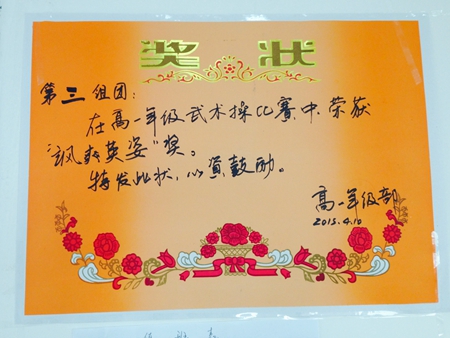 奖状
第三组团：
在高一年级武术操比赛中荣获
“飒爽英姿”奖。
特发此状，以资鼓励。
高一年级部
2015.4.10